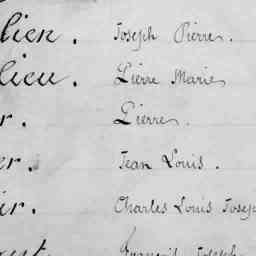 lien. Joseph Pierre.
lieu. Pierre Marie
r. Pierre.
er. Jean Louis.
ir. Charles Louis Joseph
Joseph